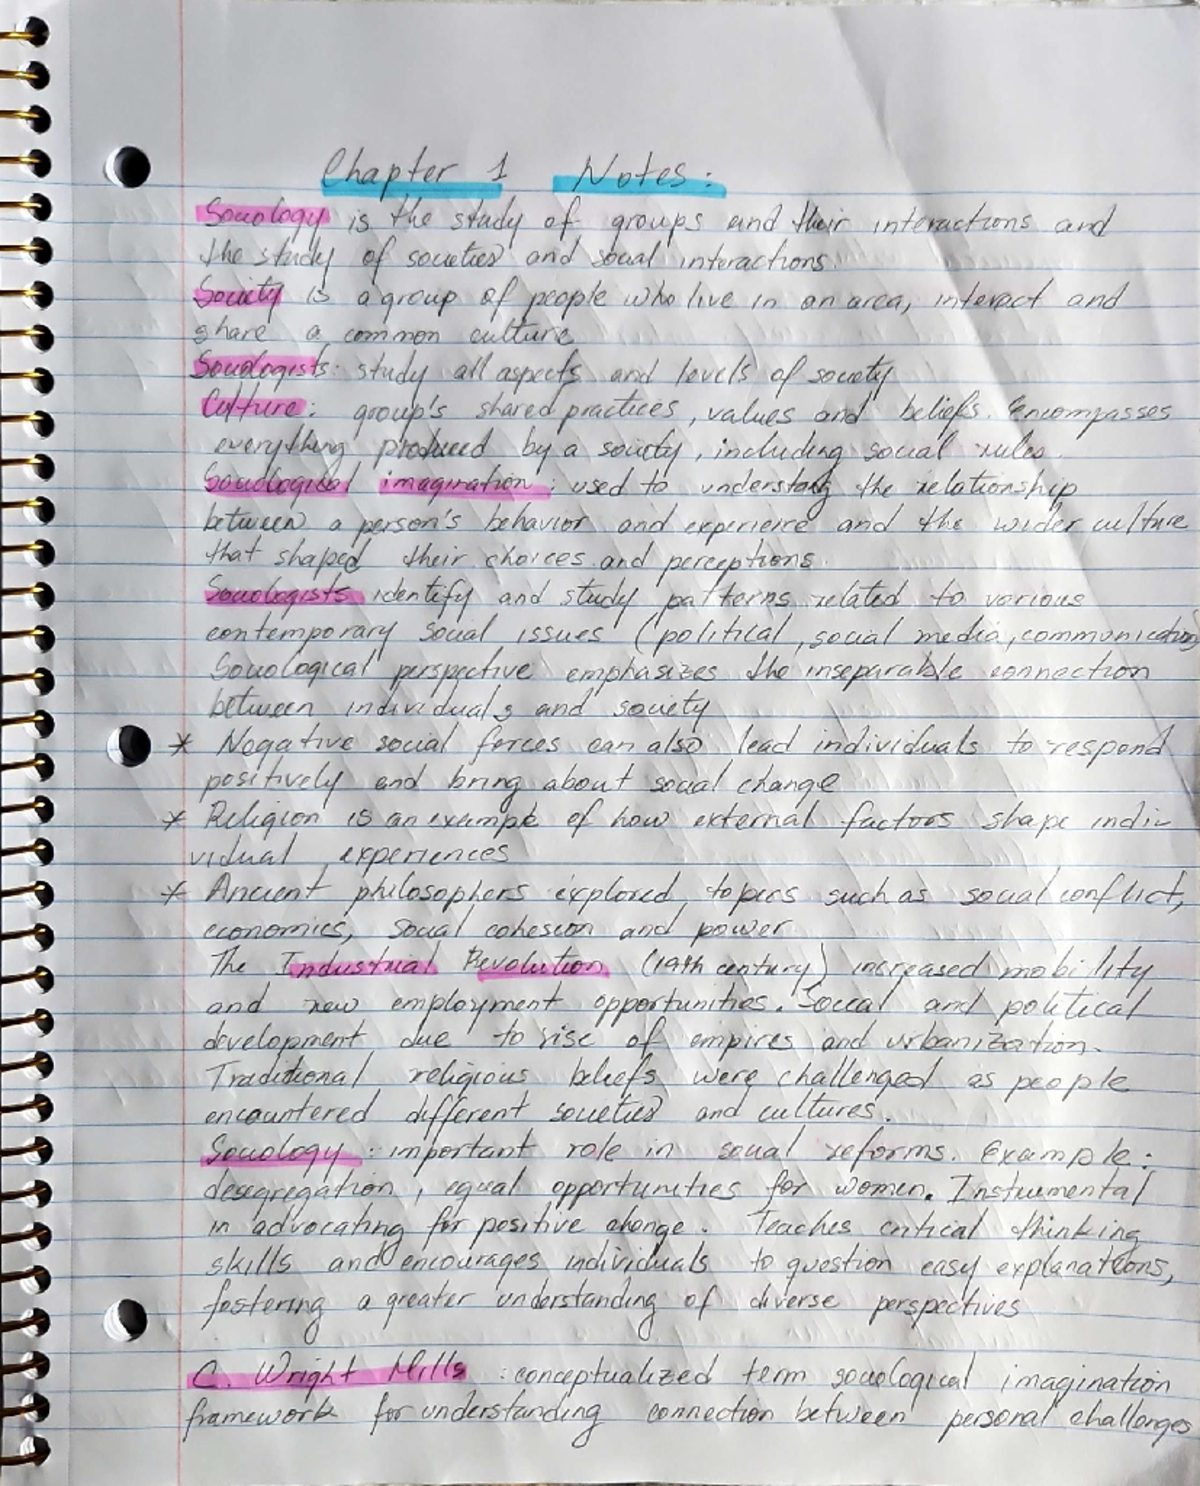 Chapter 1 Notes:
Sociology is the study of groups and their interactions and
the study of societies and social interactions.
Society is a group of people who live in an area, interact and
share a common culture
Sociologists: study all aspects and levels of society
Culture: group's shared practices, values and beliefs. Encompasses
everything produced by a society, including social rules.
Sociological imagination: used to understang the relationship
between a person's behavior and experience and the wider culture
that shaped their choices and perceptions.
Sociologists identify and study patterns related to various
contemporary social issues (political, social media, communication)
Sociological perspective emphasizes the inseparable connection
between individuals and society
* Negative social forces can also lead individuals to respond
positively and bring about social change
* Religion is an example of how external factors shape indi-
vidual experiences
* Ancient philosophers explored topics such as social conflict,
economics, social cohesion and power
The Industrial Revolution (19th century) increased mobility
and new employment opportunities. Social and political
development due to rise of empires and urbanization.
Traditional religious beliefs were challenged as people
encountered different societies and cultures.
Sociology: important role in social reforms. Example:
desegregation, equal opportunities for women. Instrumental
in advocating for positive change. Teaches critical thinking
skills and encourages individuals to question easy explanations,
fostering a greater understanding of diverse perspectives
C. Wright Mills: conceptualized term sociological imagination
framework for understanding connection between personal challenges